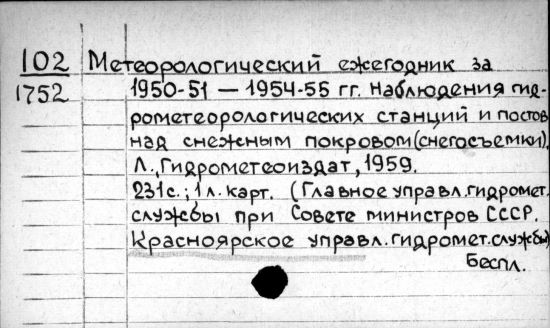 102 Метеорологический ежегодник за
1752 1950-51 — 1954-55 гг. Наблюдения гид-
рометеорологических станций и постов
над снежным покровом (снегосъемки).
Л., Гидрометеоиздат, 1959.
231 с.; 1 л. карт. (Главное управл. гидромет.
службы при Совете министров СССР.
Красноярское управл. гидромет. службы)
Беспл.